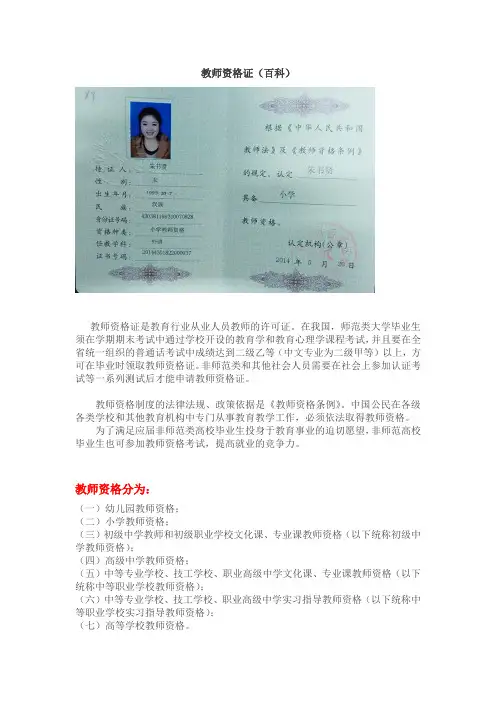 教师资格证（百科）
根据《中华人民共和国
教师法》及《教师资格条例》
的规定，认定
具备 小学
教师资格。
认定机构(公章)
2014 年 5 月 日
持证人：
性 别： 女
出生年月：
民 族： 汉族
身份证号码：
资格种类： 小学教师资格
任教学科：
证书号码：
教师资格证是教育行业从业人员教师的许可证。在我国，师范类大学毕业生
须在学期期末考试中通过学校开设的教育学和教育心理学课程考试，并且要在全
省统一组织的普通话考试中成绩达到二级乙等（中文专业为二级甲等）以上，方
可在毕业时领取教师资格证。非师范类和其他社会人员需要在社会上参加认证考
试等一系列测试后才能申请教师资格证。
教师资格制度的法律法规、政策依据是《教师资格条例》，中国公民在各级
各类学校和其他教育机构中专门从事教育教学工作，必须依法取得教师资格。
为了满足应届非师范类高校毕业生投身于教育事业的迫切愿望，非师范高校
毕业生也可参加教师资格考试，提高就业的竞争力。
教师资格分为：
（一）幼儿园教师资格；
（二）小学教师资格；
（三）初级中学教师和初级职业学校文化课、专业课教师资格（以下统称初级中
学教师资格）；
（四）高级中学教师资格；
（五）中等专业学校、技工学校、职业高级中学文化课、专业课教师资格（以下
统称中等职业学校教师资格）；
（六）中等专业学校、技工学校、职业高级中学实习指导教师资格（以下统称中
等职业学校实习指导教师资格）；
（七）高等学校教师资格。